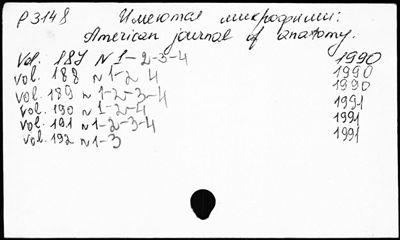 P3148 Имеются микрофиши:
American journal of anatomy.
Vol. 187 N 1-2-3-4 1990
vol. 188 N 1-2 4 1990
vol. 189 N 1-2-3-4 1990
vol. 190 N 1-2-4 1991
vol. 191 N 1-2-3-4 1991
vol. 192 N 1-3 1991